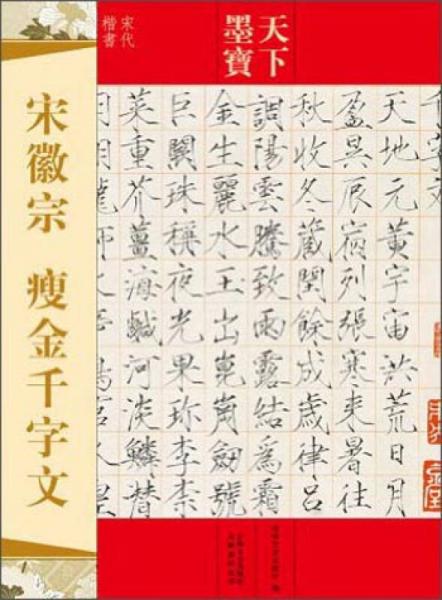 宋徽宗 瘦金千字文
宋代
楷書
天下
墨寶
千字文
天地元黄宇宙洪荒日月
盈昃辰宿列張寒来暑往
秋收冬藏閏餘成歲律呂
調陽雲騰致雨露結為霜
金生麗水玉出崑崗劍號
巨闕珠稱夜光果珍李柰
菜重芥薑海鹹河淡鱗潛
羽翔龍師火帝鳥官人皇